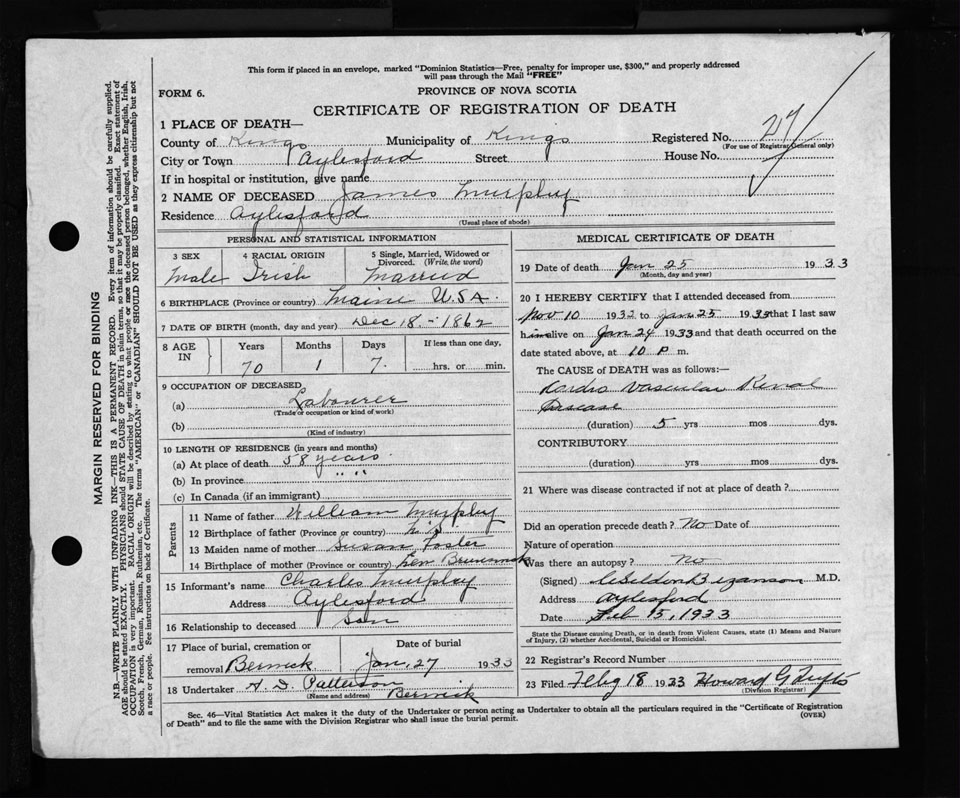 This form if placed in an envelope, marked "Dominion Statistics—Free, penalty for improper use, $300," and properly addressed
will pass through the Mail "FREE"
FORM 6.
PROVINCE OF NOVA SCOTIA
CERTIFICATE OF REGISTRATION OF DEATH
1 PLACE OF DEATH—
County of Kings Municipality of Kings Registered No. 27
(For use of Registrar General only)
City or Town Aylesford Street House No.
If in hospital or institution, give name
2 NAME OF DECEASED James Murphy
Residence Aylesford
(Usual place of abode)
PERSONAL AND STATISTICAL INFORMATION
3 SEX 4 RACIAL ORIGIN 5 Single, Married, Widowed or
Divorced. (Write the word)
Male Irish Married
6 BIRTHPLACE (Province or country) Maine U.S.A.
7 DATE OF BIRTH (month, day and year) Dec 18 - 1862
8 AGE IN Years Months Days If less than one day,
70 1 7 hrs. or min.
9 OCCUPATION OF DECEASED
(a) Labourer
(Trade or occupation or kind of work)
(b)
(Kind of industry)
10 LENGTH OF RESIDENCE (in years and months)
(a) At place of death 58 years
(b) In province " "
(c) In Canada (if an immigrant)
Parents
11 Name of father William Murphy
12 Birthplace of father (Province or country)
13 Maiden name of mother Susan Foster
14 Birthplace of mother (Province or country) New Brunswick
15 Informant's name Charles Murphy
Address Aylesford
16 Relationship to deceased Son
17 Place of burial, cremation or removal Berwick Date of burial Jan, 27 1933
18 Undertaker A. D. Patterson Berwick
(Name and address)
MEDICAL CERTIFICATE OF DEATH
19 Date of death Jan 25 1933
(Month, day and year)
20 I HEREBY CERTIFY that I attended deceased from
Nov 10 1932 to Jan 25 1933 that I last saw
him alive on Jan 24 1933 and that death occurred on the
date stated above, at 10 P m.
The CAUSE of DEATH was as follows:—
Cardio Vascular Renal
Disease
(duration) 5 yrs mos dys.
CONTRIBUTORY
(duration) yrs. mos. dys.
21 Where was disease contracted if not at place of death?
Did an operation precede death? No Date of
Nature of operation
Was there an autopsy? No
(Signed) Bezanson M.D.
Address Aylesford
Date Feb 15, 1933
State the Disease causing Death, or in death from Violent Causes, state (1) Means and Nature
of Injury, (2) whether Accidental, Suicidal or Homicidal.
22 Registrar's Record Number
23 Filed 18 1933 Howard G
(Division Registrar)
Sec. 46—Vital Statistics Act makes it the duty of the Undertaker or person acting as Undertaker to obtain all the particulars required in the "Certificate of Registration
of Death" and to file the same with the Division Registrar who shall issue the burial permit.
(OVER)
MARGIN RESERVED FOR BINDING
N.B.—WRITE PLAINLY WITH UNFADING INK—THIS IS A PERMANENT RECORD. Every item of information should be carefully supplied.
AGE should be stated EXACTLY. PHYSICIANS should STATE CAUSE OF DEATH in plain terms, so that it may be properly classified. Exact statement of
OCCUPATION is very important. RACIAL ORIGIN will be described by stating to what people or race the deceased person belonged, whether English, Irish,
Scotch, French, German, Russian, Ruthenian, etc. The terms "AMERICAN" or "CANADIAN" SHOULD NOT BE USED as they express citizenship but not
a race or people. See instructions on back of Certificate.